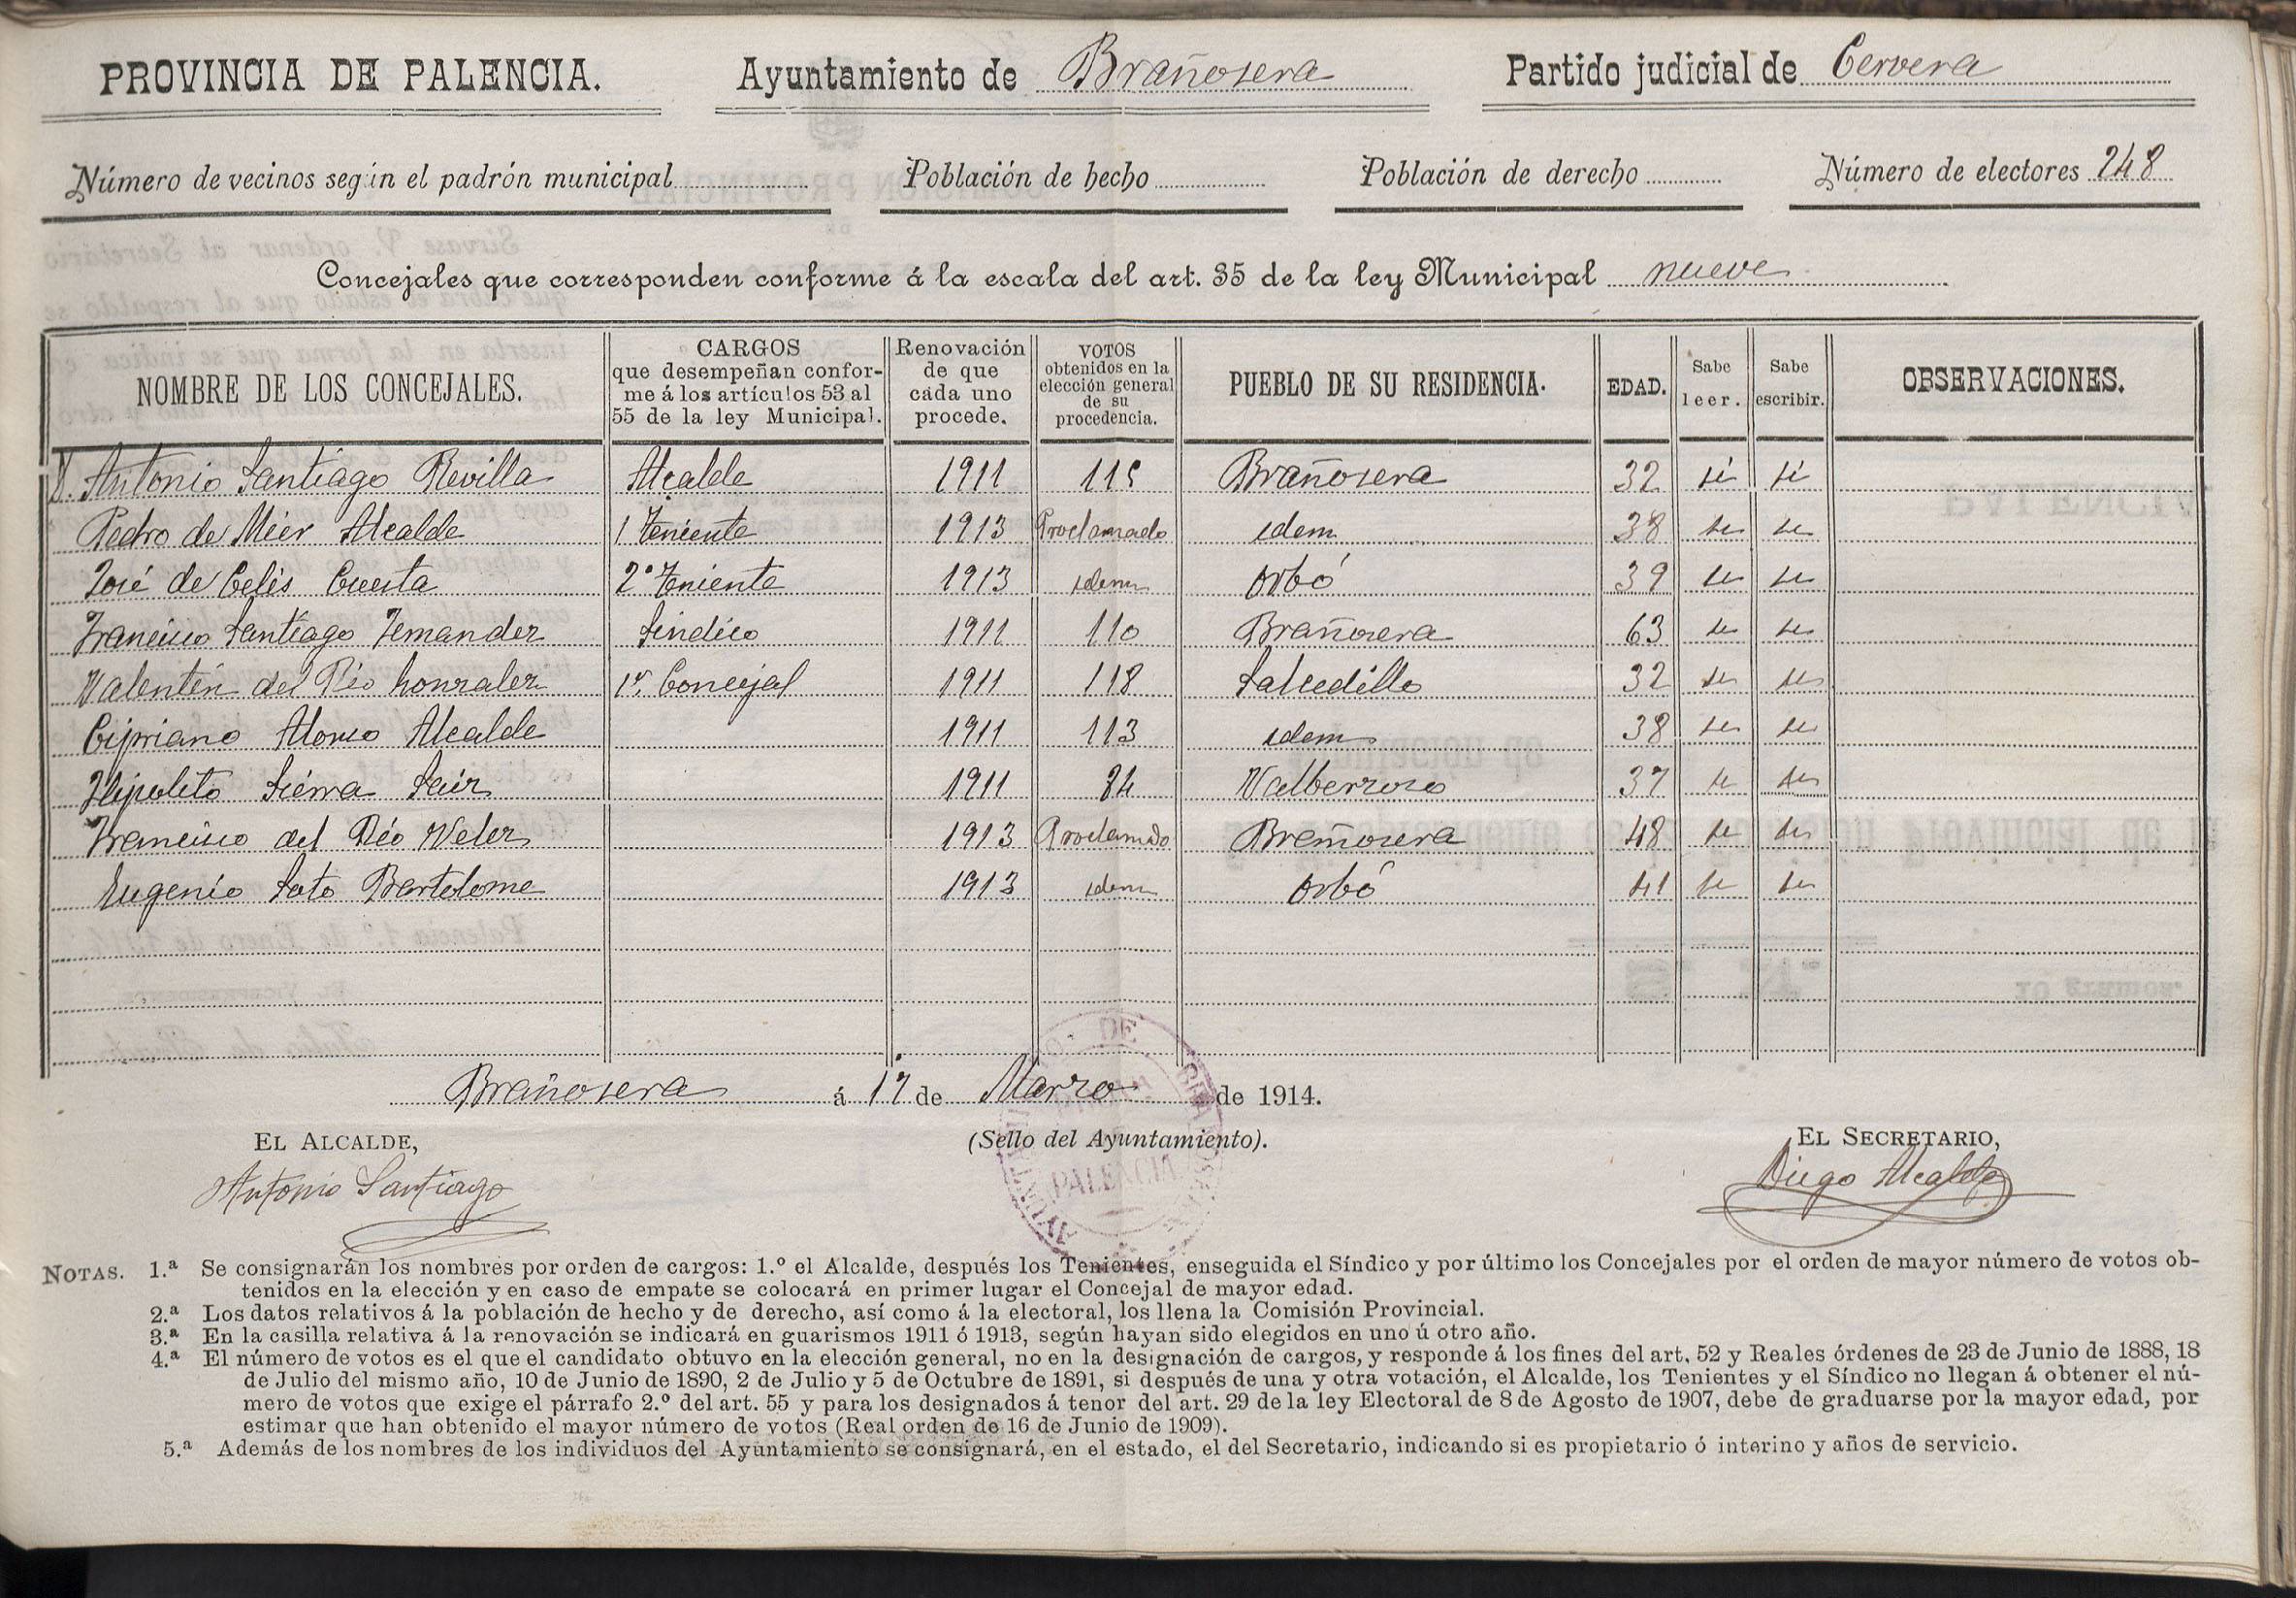 PROVINCIA DE PALENCIA. Ayuntamiento de Brañosera Partido judicial de Cervera
Número de vecinos según el padrón municipal Población de hecho Población de derecho Número de electores 248
Concejales que corresponden conforme á la escala del art. 35 de la ley Municipal nueve
NOMBRE DE LOS CONCEJALES. CARGOS que desempeñan conforme á los artículos 53 al 55 de la ley Municipal. Renovación de que cada uno procede. VOTOS obtenidos en la elección general de su procedencia. PUEBLO DE SU RESIDENCIA. EDAD. Sabe leer. Sabe escribir. OBSERVACIONES.
D. Antonio Santiago Revilla Alcalde 1911 115 Brañosera 32 si si
Pedro de Mier Alcalde 1 Teniente 1913 Proclamado idem 38 si si
José de Celis Cuesta 2º Teniente 1913 idem Orbó 39 si si
Francisco Santiago Fernandez Sindico 1911 110 Brañosera 63 si si
Valentín del Río Gonzalez 1r. Concejal 1911 118 Salcedillo 32 si si
Cipriano Alonso Alcalde 1911 113 idem 38 si si
Hipolito Sierra Seiz 1911 84 Valberzoso 37 si si
Francisco del Río Velez 1913 Proclamado Brañosera 48 si si
Eugenio Soto Bartolome 1913 idem Orbó 41 si si
Brañosera á 17 de Marzo de 1914.
EL ALCALDE, (Sello del Ayuntamiento). EL SECRETARIO,
Antonio Santiago PALENCIA Diego Alcalde
NOTAS. 1.ª Se consignarán los nombres por orden de cargos: 1.º el Alcalde, después los Tenientes, enseguida el Síndico y por último los Concejales por el orden de mayor número de votos ob-
tenidos en la elección y en caso de empate se colocará en primer lugar el Concejal de mayor edad.
2.ª Los datos relativos á la población de hecho y de derecho, así como á la electoral, los llena la Comisión Provincial.
3.ª En la casilla relativa á la renovación se indicará en guarismos 1911 ó 1913, según hayan sido elegidos en uno ú otro año.
4.ª El número de votos es el que el candidato obtuvo en la elección general, no en la designación de cargos, y responde á los fines del art. 52 y Reales órdenes de 23 de Junio de 1888, 18
de Julio del mismo año, 10 de Junio de 1890, 2 de Julio y 5 de Octubre de 1891, si después de una y otra votación, el Alcalde, los Tenientes y el Síndico no llegan á obtener el nú-
mero de votos que exige el párrafo 2.º del art. 55 y para los designados á tenor del art. 29 de la ley Electoral de 8 de Agosto de 1907, debe de graduarse por la mayor edad, por
estimar que han obtenido el mayor número de votos (Real orden de 16 de Junio de 1909).
5.ª Además de los nombres de los individuos del Ayuntamiento se consignará, en el estado, el del Secretario, indicando si es propietario ó interino y años de servicio.